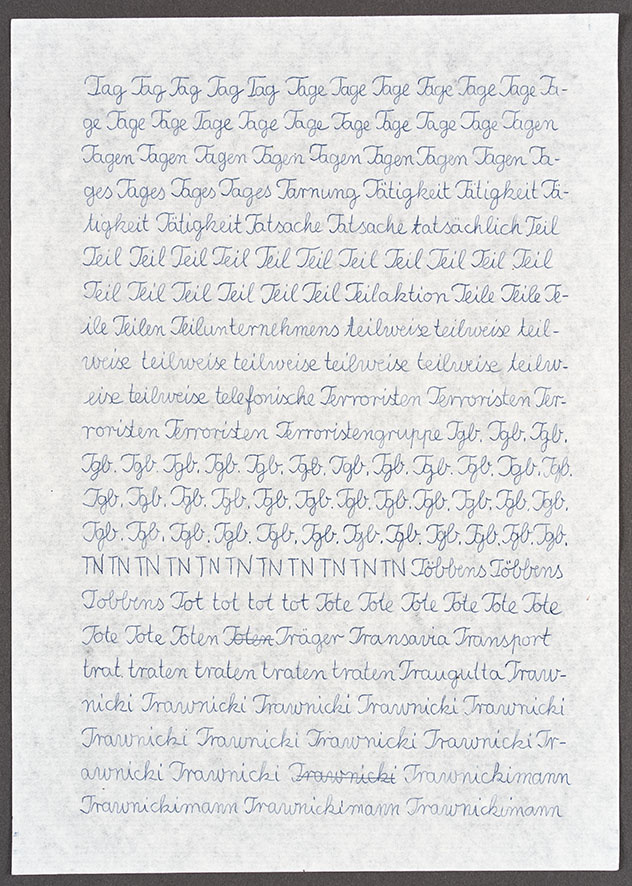 Tag Tag Tag Tag Tag Tage Tage Tage Tage Tage Tage Ta-
ge Tage Tage Tage Tage Tage Tage Tage Tage Tage Tagen
Tagen Tagen Tagen Tagen Tagen Tagen Tagen Tagen Ta-
ges Tages Tages Tages Tarnung Tätigkeit Tätigkeit Tä-
tigkeit Tätigkeit Tatsache Tatsache tatsächlich Teil
Teil Teil Teil Teil Teil Teil Teil Teil Teil Teil Teil
Teil Teil Teil Teil Teil Teil Teilaktion Teile Teile Te-
ile Teilen Teilunternehmens teilweise teilweise teil-
weise teilweise teilweise teilweise teilweise teilw-
eise teilweise telefonische Terroristen Terroristen Ter-
roristen Terroristen Terroristengruppe Tgb. Tgb. Tgb.
Tgb. Tgb. Tgb. Tgb. Tgb. Tgb. Tgb. Tgb. Tgb. Tgb. Tgb. Tgb.
Tgb. Tgb. Tgb. Tgb. Tgb. Tgb. Tgb. Tgb. Tgb. Tgb. Tgb. Tgb.
Tgb. Tgb. Tgb. Tgb. Tgb. Tgb. Tgb. Tgb. Tgb. Tgb. Tgb. Tgb.
TN TN TN TN TN TN TN TN TN TN TN Többens Többens
Többens Tot tot tot tot Tote Tote Tote Tote Tote Tote
Tote Tote Toten Toten Träger Transavia Transport
trat traten traten traten traten Traugutta Traw-
nicki Trawnicki Trawnicki Trawnicki Trawnicki
Trawnicki Trawnicki Trawnicki Trawnicki Tr-
awnicki Trawnicki Trawnicki Trawnickimann
Trawnickimann Trawnickimann Trawnickimann